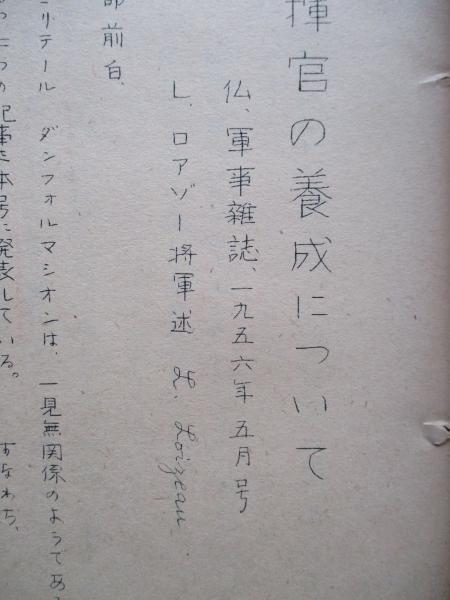 揮官の養成について
仏、軍事雑誌、一九五六年五月号
L、ロアゾー将軍述 L. Loizeau
部前白、
リテール ダンフォルマシオンは、一見無関係のようである
つの記事を本号に発表している。 すなわち、